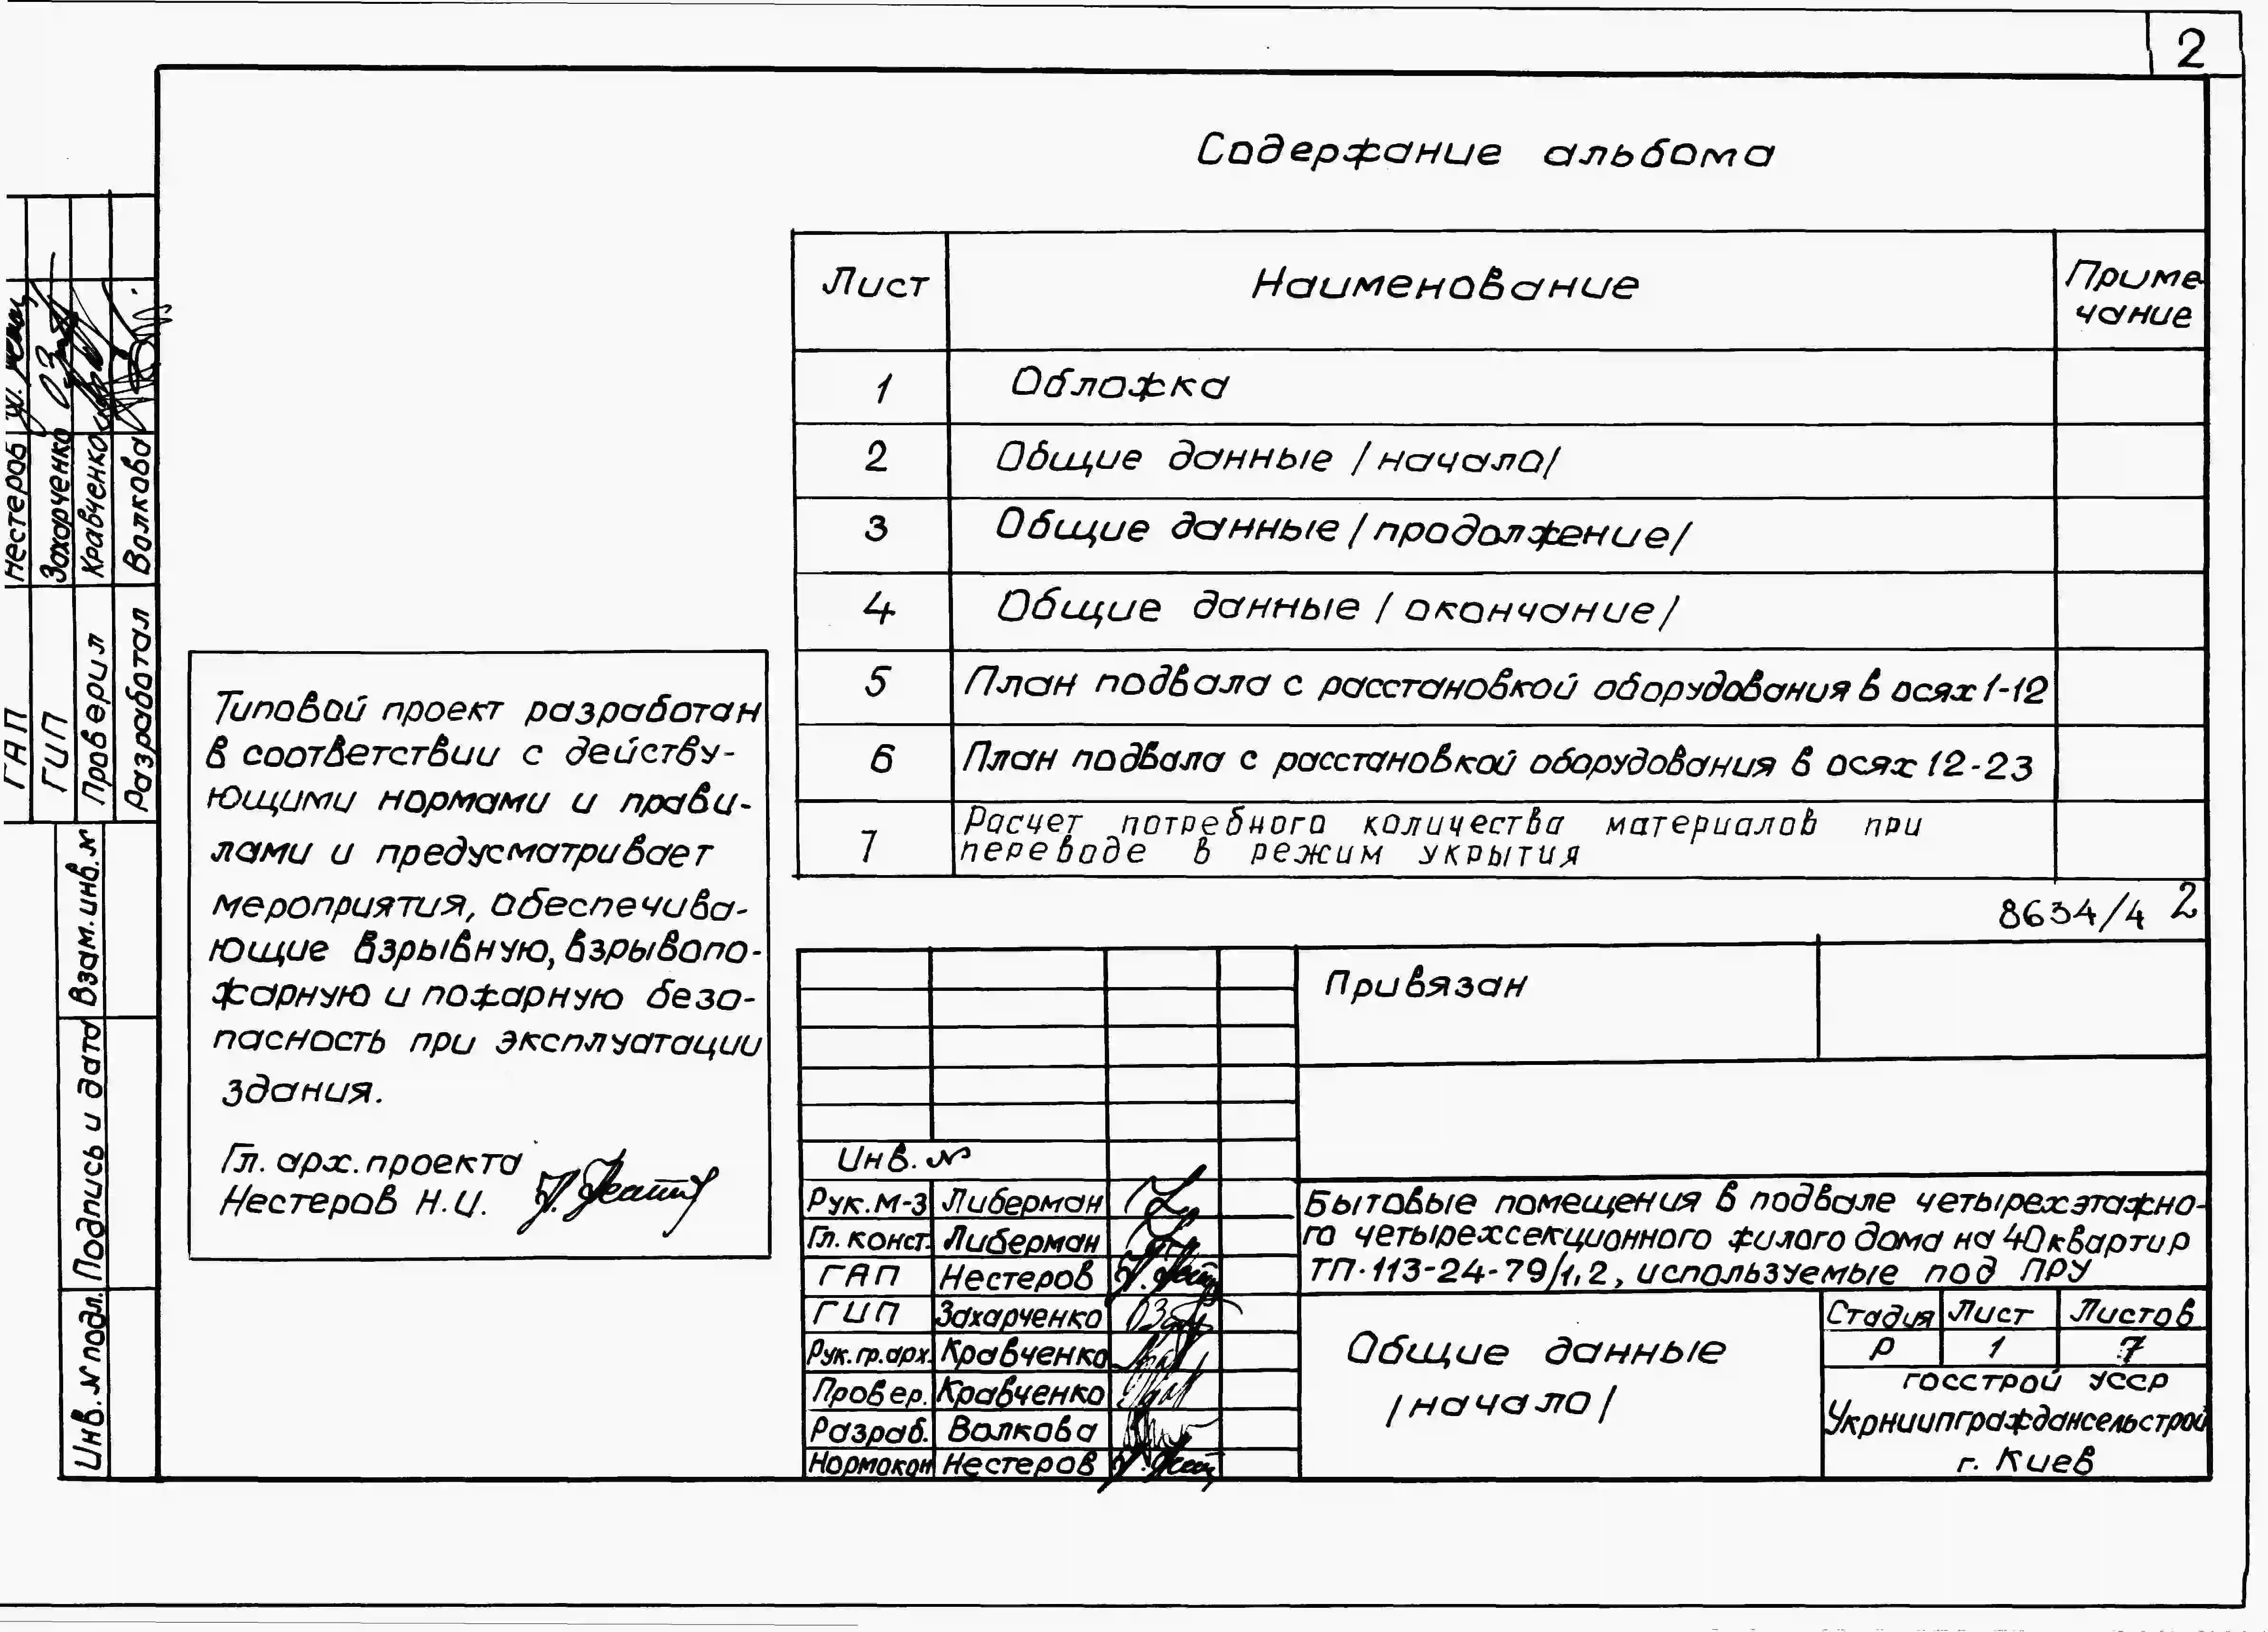 2
Содержание альбома
Лист Наименование Приме
чание
1 Обложка
2 Общие данные /начало/
3 Общие данные /продолжение/
4 Общие данные /окончание/
5 План подвала с расстановкой оборудования в осях 1-12
6 План подвала с расстановкой оборудования в осях 12-23
7 Расчет потребного количества материалов при
переводе в режим укрытия
8634/4 2
Типовой проект разработан
в соответствии с действу-
ющими нормами и прави-
лами и предусматривает
мероприятия, обеспечива-
ющие взрывную, взрывопо-
жарную и пожарную безо-
пасность при эксплуатации
здания.
Гл. арх. проекта
Нестеров Н.И.
ГАП Нестеров
ГИП Захарченко
Проверил Кравченко
Разработал Волкова
Взам. инв. №
Подпись и дата
Инв. № подл.
Привязан
Инв. №
Рук. М-3 Либерман
Гл. конст. Либерман
ГАП Нестеров
ГИП Захарченко
Рук. гр. арх. Кравченко
Провер. Кравченко
Разраб. Волкова
Нормокон Нестеров
Бытовые помещения в подвале четырехэтажно-
го четырехсекционного жилого дома на 40 квартир
ТП-113-24-79/1.2, используемые под ПРУ
Общие данные
/начало/
Стадия Лист Листов
Р 1 7
Госстрой УССР
Укрниипграждансельстрой
г. Киев